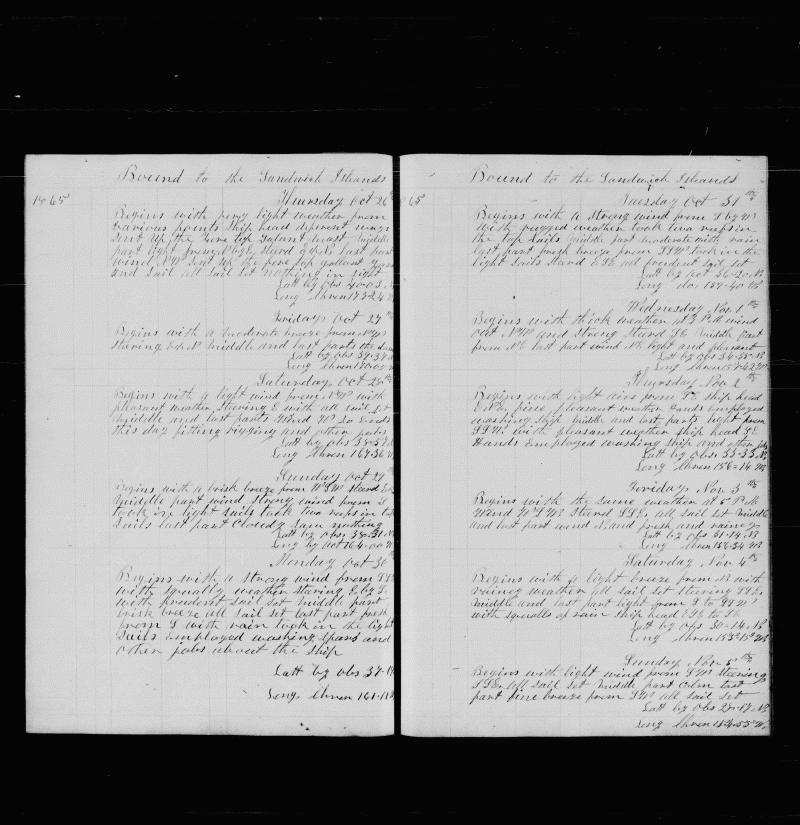 Bound to the Sandwich Islands
1865
Thursday Oct 26th
Begins with very light weather from
various points ship head diferent ways
Sent up the Fore top Galant mast Middle
part light from S by E steerd last part
wind NW Sent up the fore top gallant yard
and Sail all Sail Set nothing in sight
Latt by Obs 40-03 N
Long Chron 173-24 W
Friday Oct 27
Begins with a moderate breeze from
steering E by N Middle and last parts the Same
Latt by Obs 39-37 N
Long Chron 170-00 W
Saturday Oct 28th
Begins with a light wind from NW with
pleasant weather Steering E with all sail Set
Middle and last parts Wind So Ends
this day fitting rigging and other jobs
Latt by Obs 38-57 N
Long Chron 167-36 W
Sunday Oct 29
Begins with a brisk breeze from WSW Steerd E
Middle part wind Strong wind from S
took in light Sails took two reefs in top
Sails last part Cloudy Saw nothing
Latt by Obs 38-31 N
Long by Act 164-00 W
Monday Oct 30th
Begins with a strong wind from
with squally weather stering E by S
with prudent Sail Set Middle part
brisk breeze all sail set last part fresh
from S with rain took in the light
Sails Employed washing Spars and
other jobs about the Ship
Latt by Obs 37-
Long Chron 161-11 W
Bound to the Sandwich Islands
65
Tuesday Oct 31th
Begins with a strong wind from S by W
with rugged weather took two reefs in
the top Sails Middle part moderate with rain
last part fresh breeze from SSW took in the
light Sails Steerd ESE all prudent sail set
Latt by Act 36-20 N
Long do 159-40 W
Wednesday Nov 1th
Begins with thick weather at 3 P.M wind
out NNW and Strong Steerd SE Middle Part
from NE last part wind NE light and pleasant
Latt by Obs 34-55 N
Long Chron 157-42 W
Thursday Nov 2th
Begins with light airs from SE ship head
ENE fine pleasant weather hands Employed
washing Ship Middle and last parts light from
SSW with pleasant weather Ship head SE
Hands Employed washing Ship and other jobs
Latt by Obs 33-33 N
Long Chron 156-14 W
Friday Nov 3th
Begins with the Same weather at 6 P.M
Wind WSW Steerd SSE all sail set Middle
and last part wind N and fresh and rainey
Latt by Obs 31-14 N
Long Chron 156-34 W
Saturday Nov 4th
Begins with a light breeze from N with
rainey weather all sail set steering SSE
Middle and last part light from S to SSW
with squalls of rain ship head ESE to SE
Latt by Obs 30-14 N
Long Chron 155-15 W
Sunday Nov 5th
Begins with light wind from SW Steering
SSE all Sail Set Middle part Calm last
part fine breeze from SW all sail Set
Latt by Obs 29-17 N
Long Chron 154-55 W